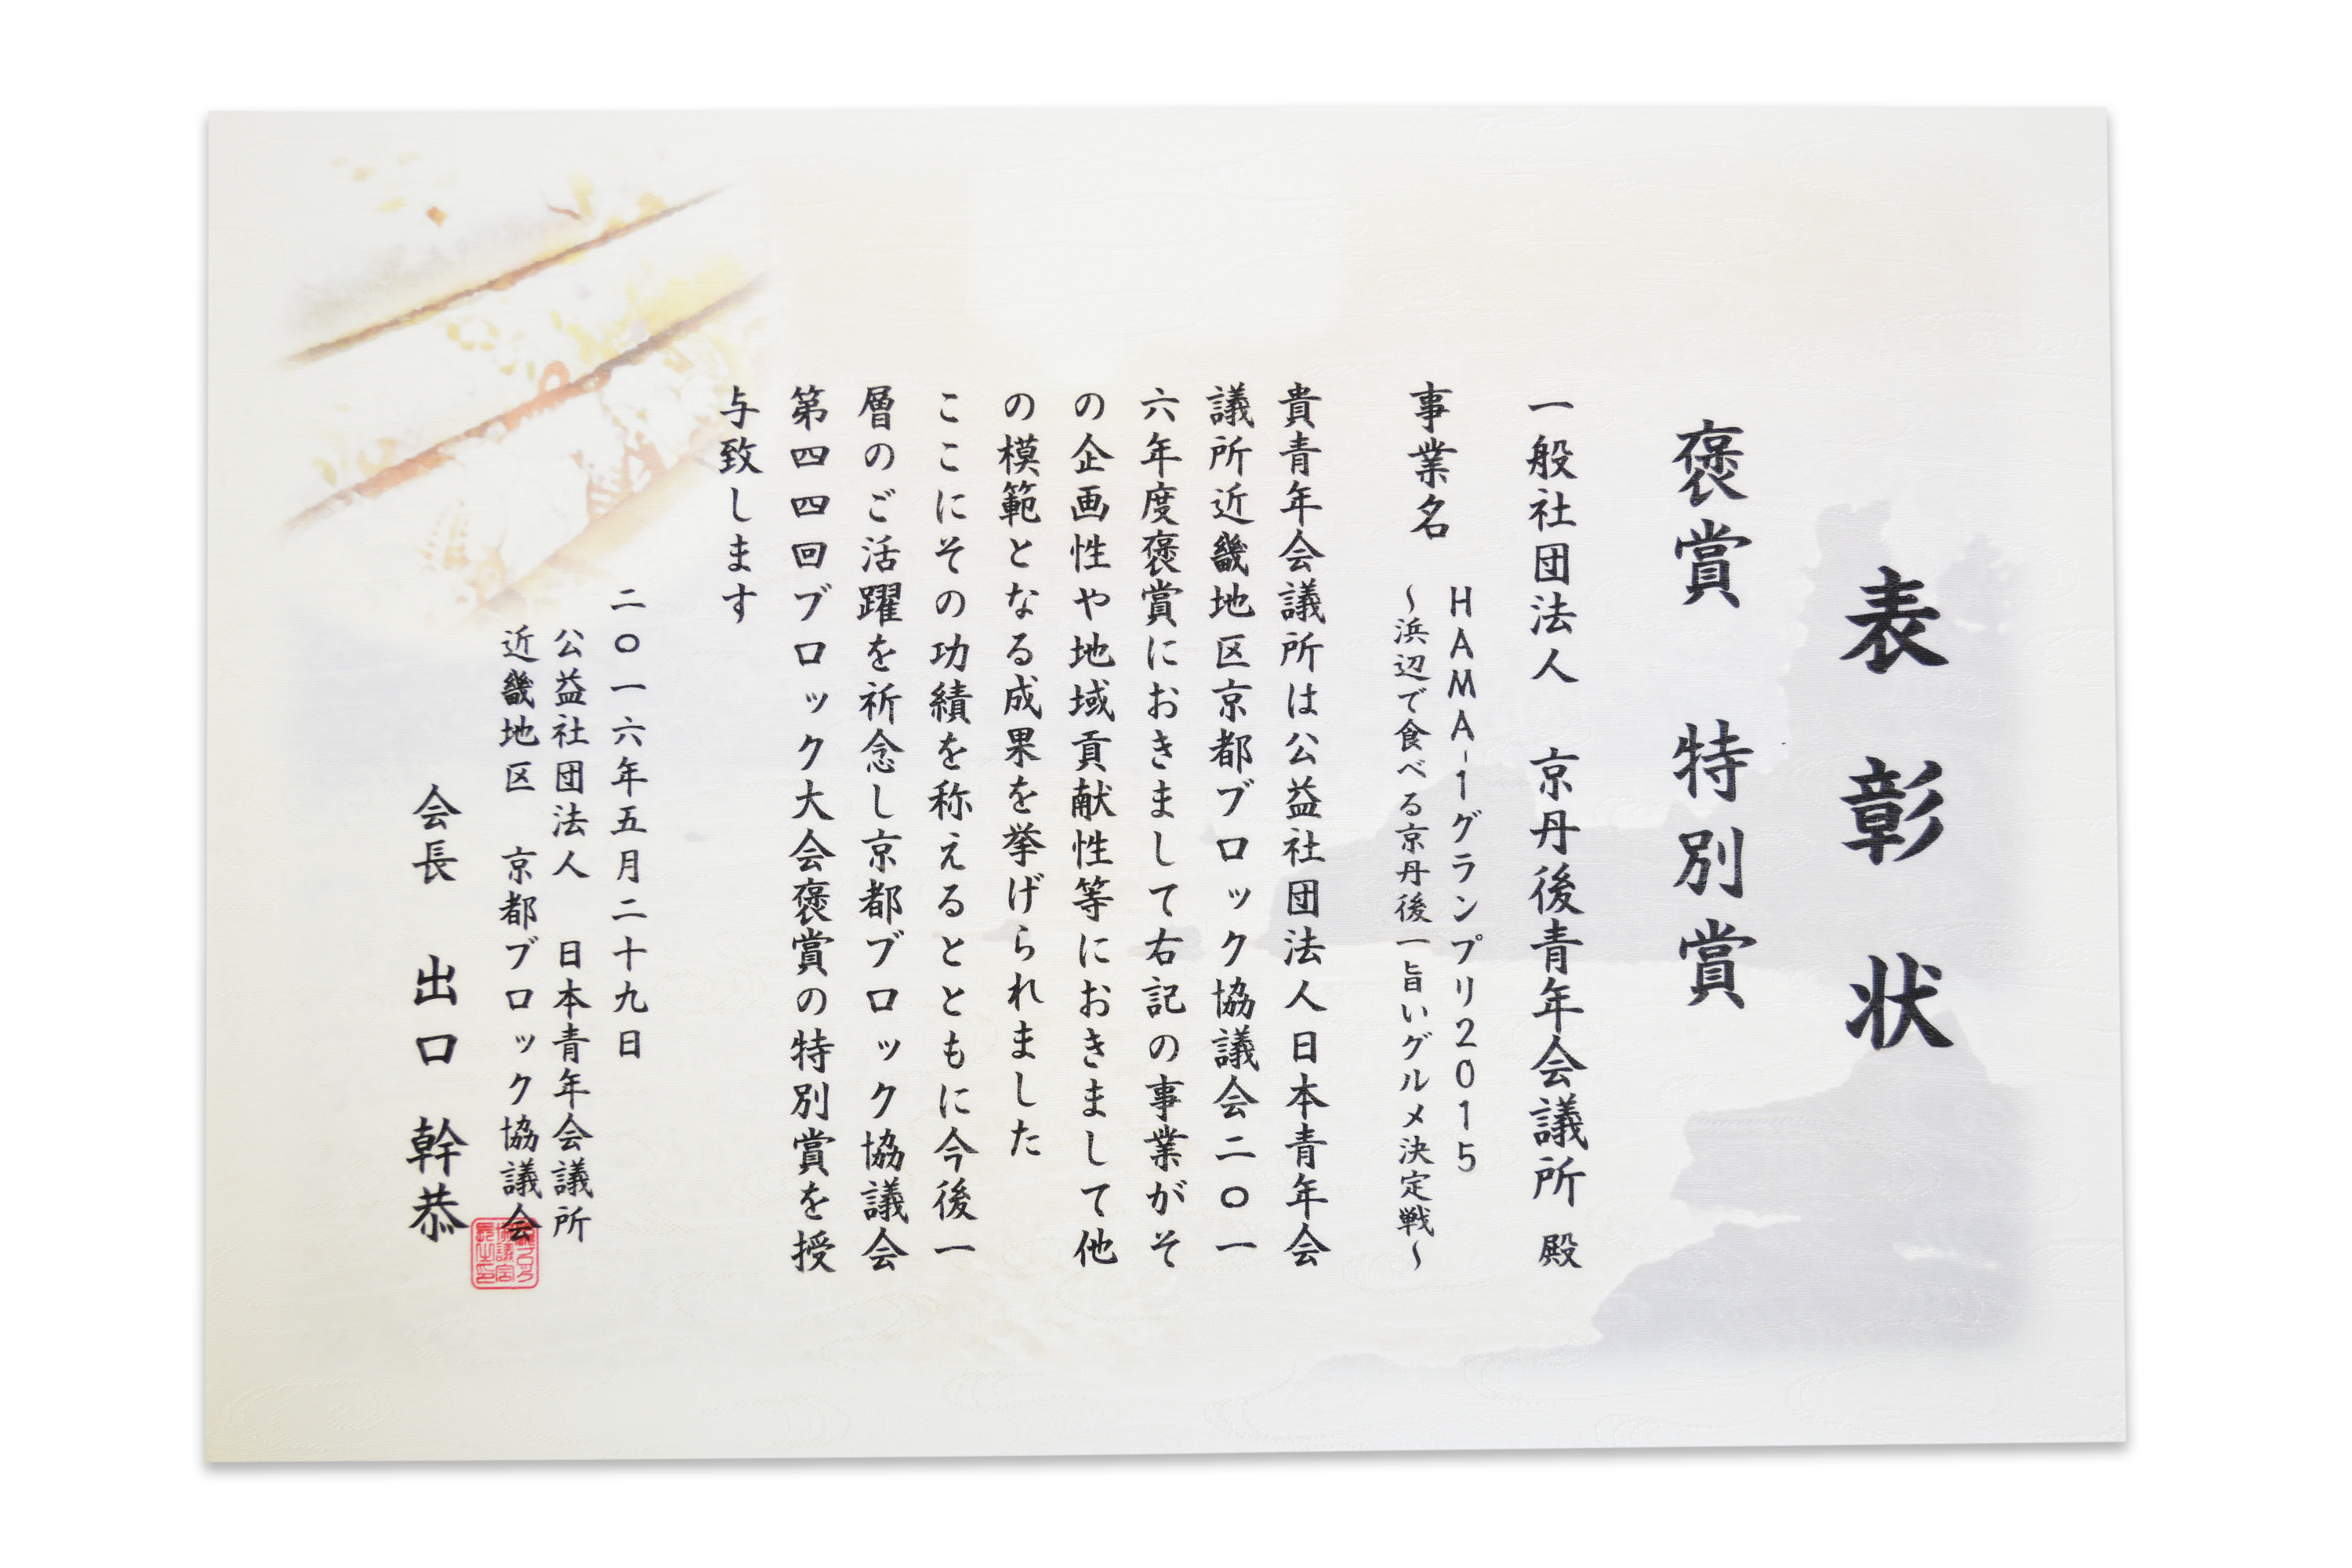 表彰状
褒賞　特別賞
一般社団法人　京丹後青年会議所　殿
事業名　HAMA-1グランプリ2015
～浜辺で食べる京丹後一旨いグルメ決定戦～
貴青年会議所は公益社団法人日本青年会
議所近畿地区京都ブロック協議会二〇一
六年度褒賞におきまして右記の事業がそ
の企画性や地域貢献性等におきまして他
の模範となる成果を挙げられました
ここにその功績を称えるとともに今後一
層のご活躍を祈念し京都ブロック協議会
第四四回ブロック大会褒賞の特別賞を授
与致します
二〇一六年五月二十九日
公益社団法人　日本青年会議所
近畿地区　京都ブロック協議会
会長　出口　幹恭